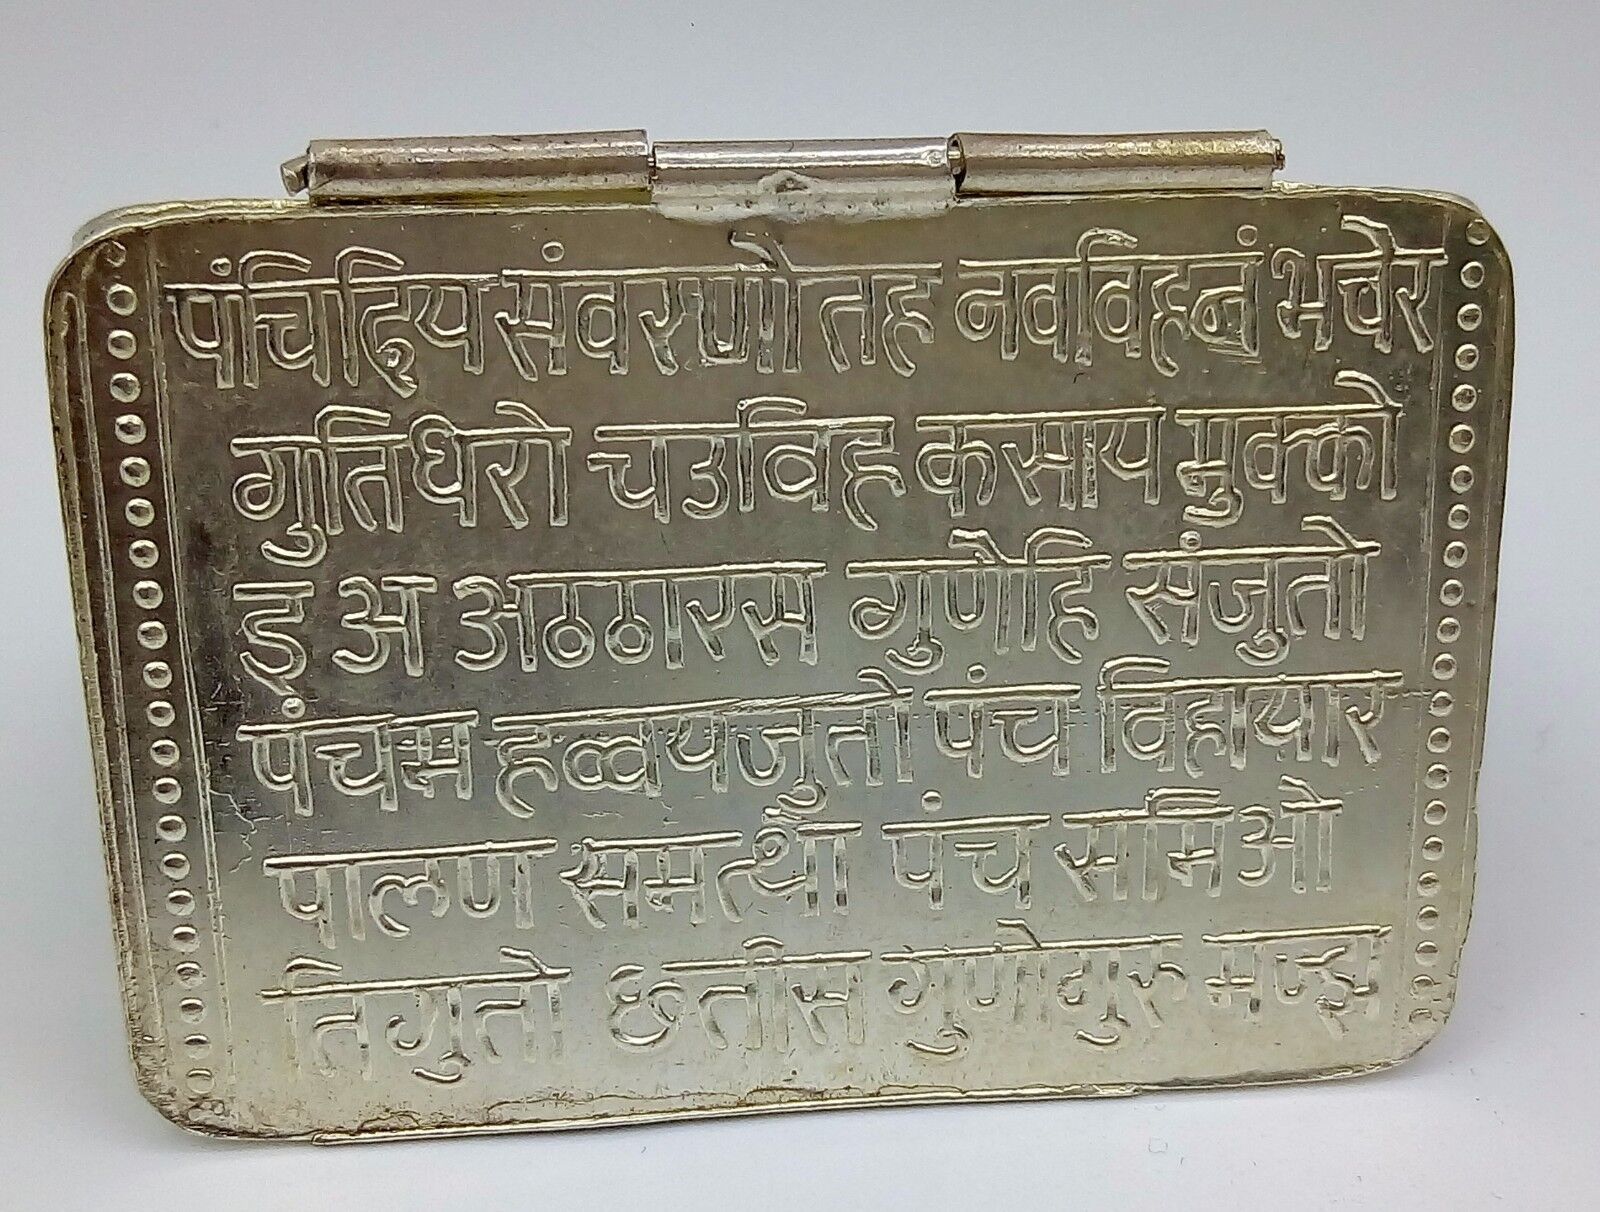 पंचिद्रिय संवरणो तह नवविहनं भचेर
गुतिधरो चउविह कसाय मुक्को
इ अ अठठारस गुणेहि संजुतो
पंचम हव्वयजुतो पंच विहायार
पालण समत्थो पंच समिओ
तिगुतो छतीस गुणोगुरु मज्झ